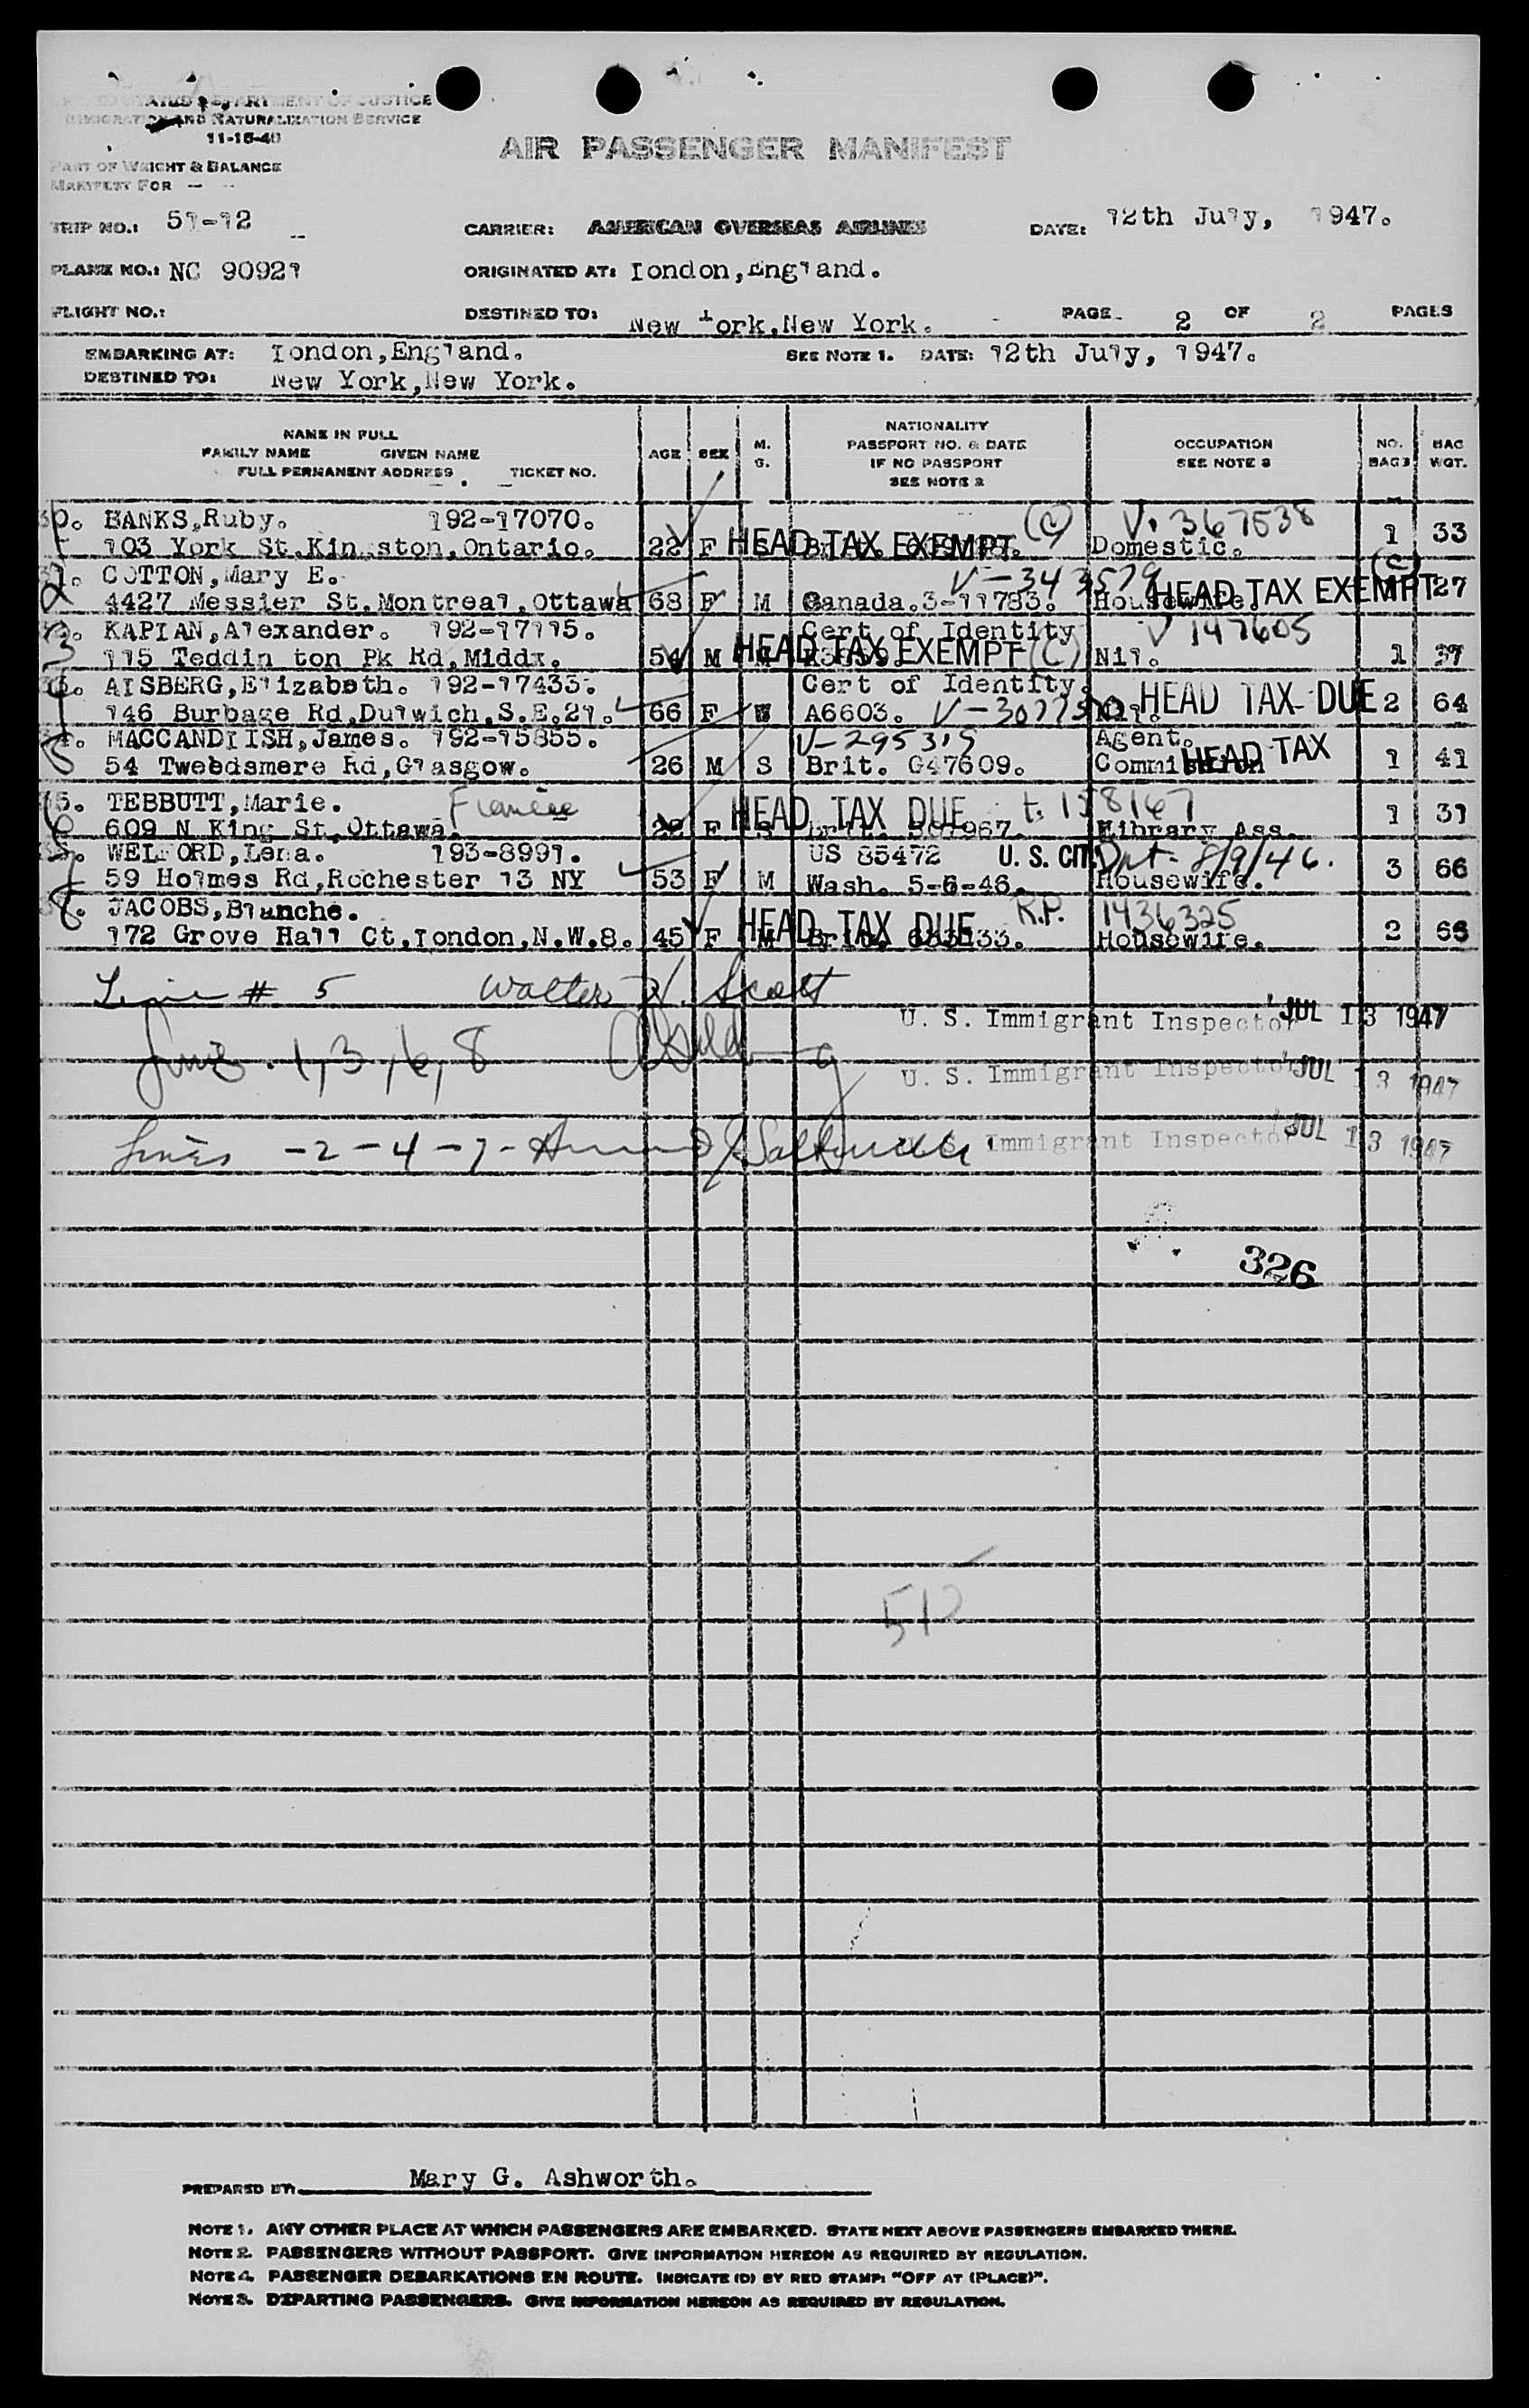 UNITED STATES DEPARTMENT OF JUSTICE
IMMIGRATION AND NATURALIZATION SERVICE
11-15-40
AIR PASSENGER MANIFEST
PART OF WEIGHT & BALANCE
MANIFEST FOR - -
TRIP NO.: 51-12 CARRIER: AMERICAN OVERSEAS AIRLINES DATE: 12th July, 1947.
PLANE NO.: NC 90921 ORIGINATED AT: London,England.
FLIGHT NO.: DESTINED TO: New York,New York. PAGE 2 OF 2 PAGES
EMBARKING AT: London,England. SEE NOTE 1. DATE: 12th July, 1947.
DESTINED TO: New York,New York.
NAME IN FULL
FAMILY NAME GIVEN NAME
FULL PERMANENT ADDRESS TICKET NO.
AGE SEX M. S.
NATIONALITY
PASSPORT NO. & DATE
IF NO PASSPORT
SEE NOTE 2
OCCUPATION
SEE NOTE 3
NO. BAGS
BAG WGT.
1 BANKS,Ruby. 192-17070. (C) V. 367538
103 York St.Kingston,Ontario. 22 F HEAD TAX EXEMPT Domestic. 1 33
2 COTTON,Mary E. V-343579 (C)
4427 Messier St.Montreal,Ottawa 68 F M Canada.3-11783. Housewife. HEAD TAX EXEMPT 27
3 KAPLAN,Alexander. 192-17115. Cert of Identity V 147605
115 Teddington Pk Rd,Middx. 54 M HEAD TAX EXEMPT (C) Nil. 1 37
4 ALSBERG,Elizabeth. 192-17433. Cert of Identity.
146 Burbage Rd,Dulwich,S.E.21. 66 F A6603. Nil. HEAD TAX DUE 2 64
5 MACCANDLISH,James. 192-15855. V-295315 Agent.
54 Tweedsmere Rd,Glasgow. 26 M S Brit. G47609. Commission HEAD TAX 1 41
6 TEBBUTT,Marie. Fiancee t. 158167
609 N King St,Ottawa. F HEAD TAX DUE Library Ass. 1 31
7 WELFORD,Lena. 193-8991. US 85472 U. S. CIT. 8/9/46.
59 Holmes Rd,Rochester 13 NY 53 F M Wash. 5-6-46. Housewife. 3 66
8 JACOBS,Blanche. R.P. 1436325
172 Grove Hall Ct,London,N.W.8. 45 F M HEAD TAX DUE Housewife. 2 65
Line # 5 Walter H. Scott
U. S. Immigrant Inspector JUL 13 1947
Lines. 1,3,6,8
U. S. Immigrant Inspector JUL 13 1947
Lines -2-4-7-
U. S. Immigrant Inspector JUL 13 1947
326
512
PREPARED BY: Mary G. Ashworth.
NOTE 1. ANY OTHER PLACE AT WHICH PASSENGERS ARE EMBARKED. STATE NEXT ABOVE PASSENGERS EMBARKED THERE.
NOTE 2. PASSENGERS WITHOUT PASSPORT. GIVE INFORMATION HEREON AS REQUIRED BY REGULATION.
NOTE 4. PASSENGER DEBARKATIONS EN ROUTE. INDICATE (D) BY RED STAMP: "OFF AT (PLACE)".
NOTE 3. DEPARTING PASSENGERS. GIVE INFORMATION HEREON AS REQUIRED BY REGULATION.